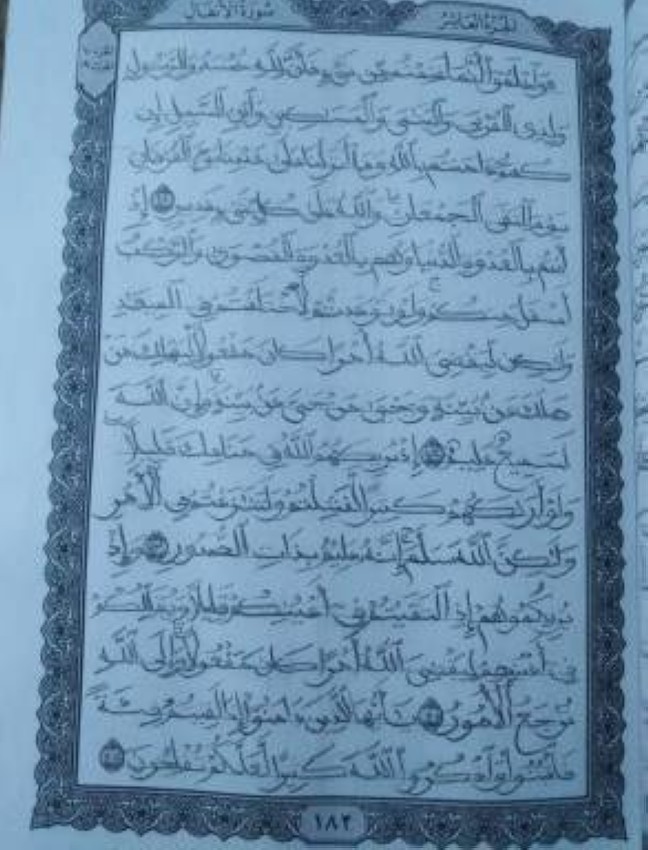 سورة الأنفال
الجزء العاشر
وَاعْلَمُوا أَنَّمَا غَنِمْتُم مِّن شَيْءٍ فَأَنَّ لِلَّهِ خُمُسَهُ وَلِلرَّسُولِ
وَلِذِي الْقُرْبَىٰ وَالْيَتَامَىٰ وَالْمَسَاكِينِ وَابْنِ السَّبِيلِ إِن
كُنتُمْ آمَنتُم بِاللَّهِ وَمَا أَنزَلْنَا عَلَىٰ عَبْدِنَا يَوْمَ الْفُرْقَانِ
يَوْمَ الْتَقَى الْجَمْعَانِ ۗ وَاللَّهُ عَلَىٰ كُلِّ شَيْءٍ قَدِيرٌ ٤١ إِذْ
أَنتُم بِالْعُدْوَةِ الدُّنْيَا وَهُم بِالْعُدْوَةِ الْقُصْوَىٰ وَالرَّكْبُ
أَسْفَلَ مِنكُمْ ۚ وَلَوْ تَوَاعَدتُّمْ لَاخْتَلَفْتُمْ فِي الْمِيعَادِ
وَلَٰكِن لِّيَقْضِيَ اللَّهُ أَمْرًا كَانَ مَفْعُولًا لِّيَهْلِكَ مَنْ
هَلَكَ عَن بَيِّنَةٍ وَيَحْيَىٰ مَنْ حَيَّ عَن بَيِّنَةٍ ۗ وَإِنَّ اللَّهَ
لَسَمِيعٌ عَلِيمٌ ٤٢ إِذْ يُرِيكَهُمُ اللَّهُ فِي مَنَامِكَ قَلِيلًا
وَلَوْ أَرَاكَهُمْ كَثِيرًا لَّفَشِلْتُمْ وَلَتَنَازَعْتُمْ فِي الْأَمْرِ
وَلَٰكِنَّ اللَّهَ سَلَّمَ ۗ إِنَّهُ عَلِيمٌ بِذَاتِ الصُّدُورِ ٤٣ وَإِذْ
يُرِيكُمُوهُمْ إِذِ الْتَقَيْتُمْ فِي أَعْيُنِكُمْ قَلِيلًا وَيُقَلِّلُكُمْ
فِي أَعْيُنِهِمْ لِيَقْضِيَ اللَّهُ أَمْرًا كَانَ مَفْعُولًا ۗ وَإِلَى اللَّهِ
تُرْجَعُ الْأُمُورُ ٤٤ يَا أَيُّهَا الَّذِينَ آمَنُوا إِذَا لَقِيتُمْ فِئَةً
فَاثْبُتُوا وَاذْكُرُوا اللَّهَ كَثِيرًا لَّعَلَّكُمْ تُفْلِحُونَ ٤٥
١٨٢